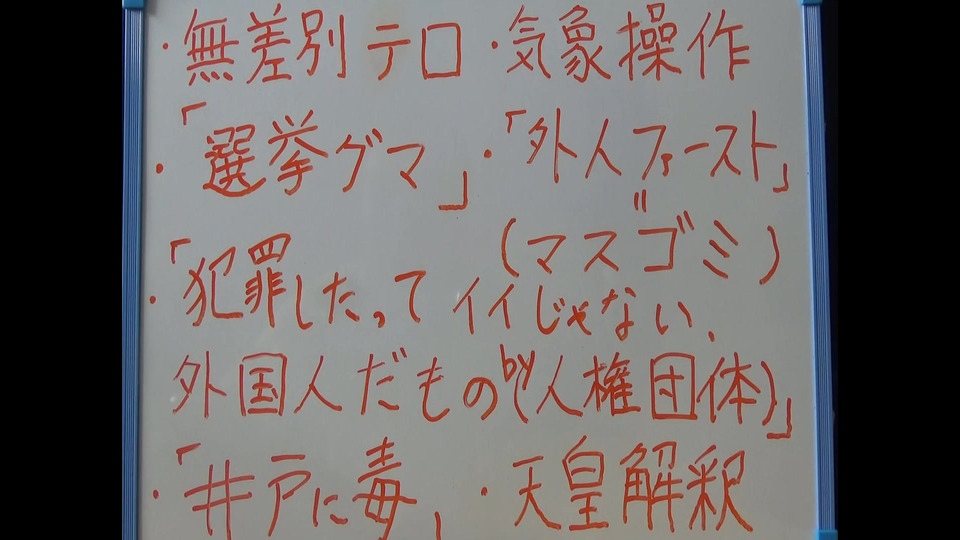 ・無差別テロ ・気象操作
・「選挙グマ」 ・「外人ファースト」
=
(マスゴミ)
・「犯罪したってイイじゃない、
外国人だもの(by人権団体)」
・「井戸に毒」 ・天皇解釈